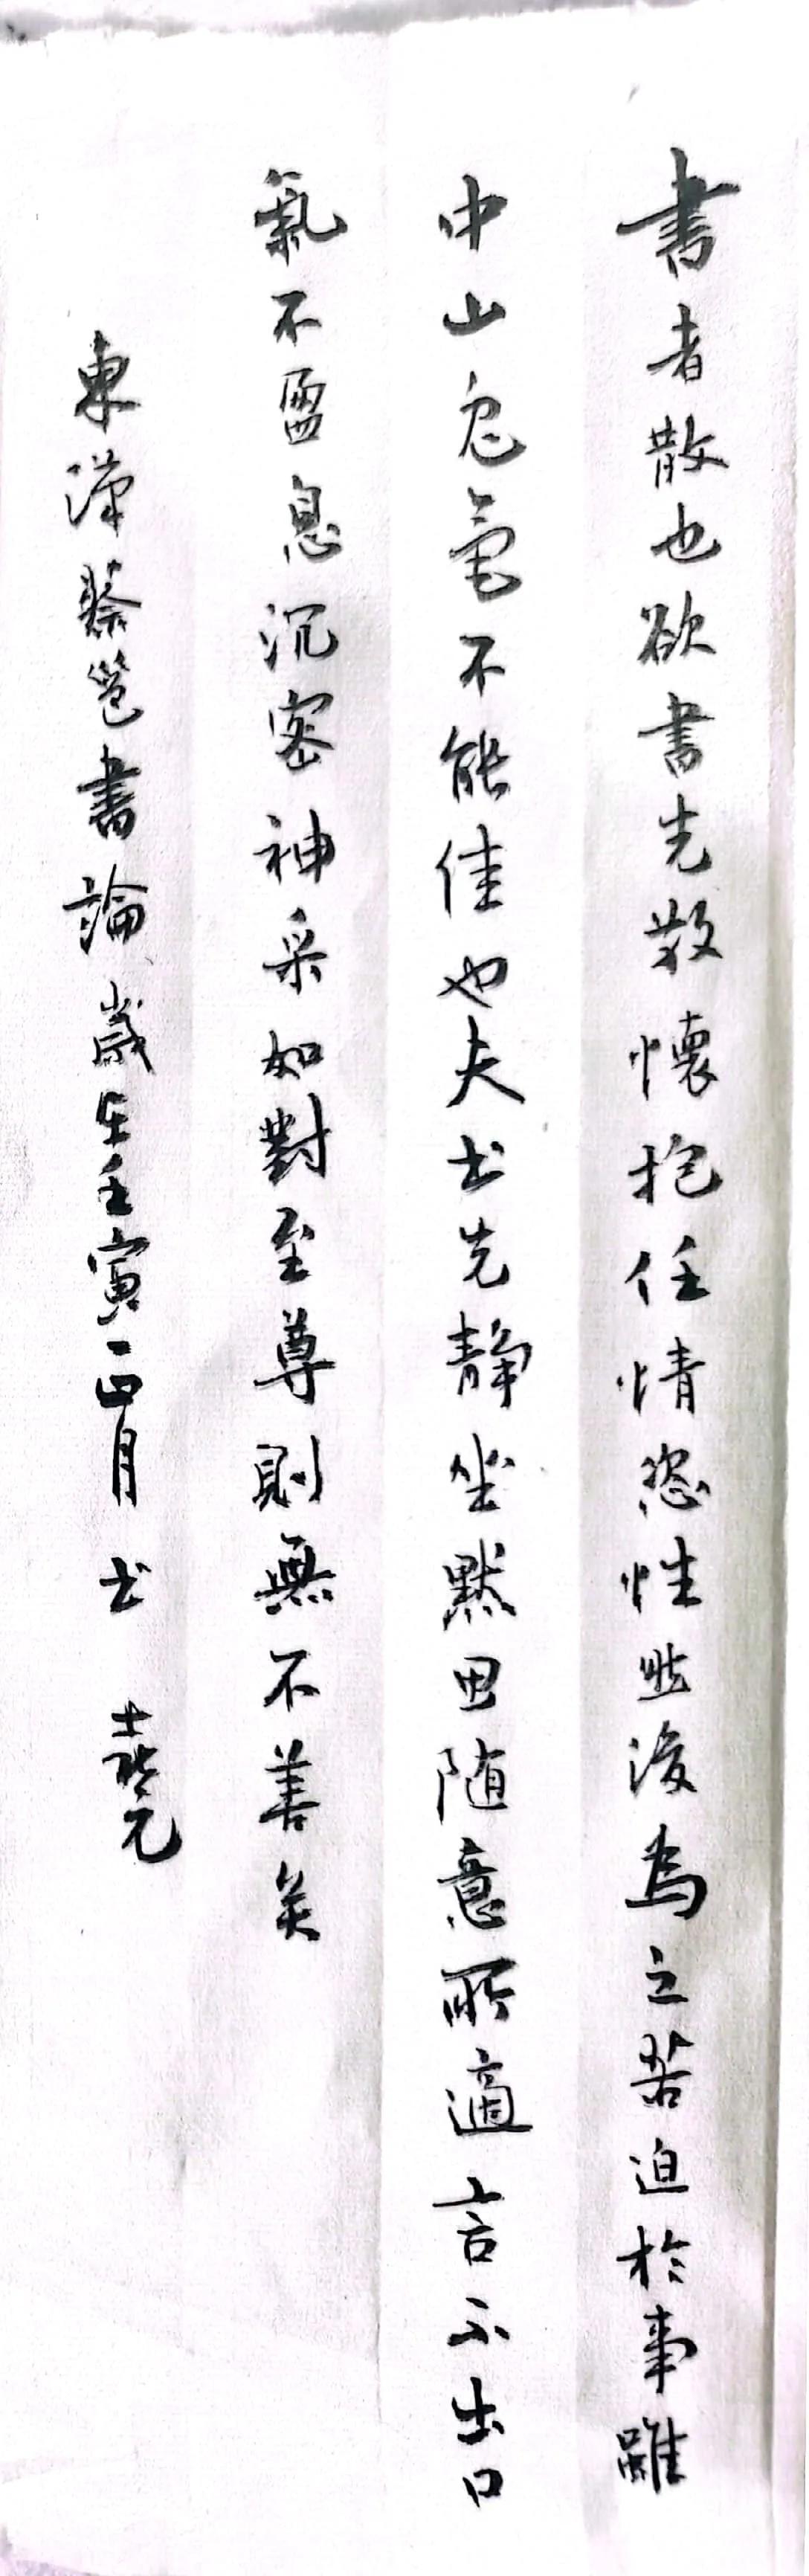 書者散也欲書先散懷抱任情恣性然後為之若迫於事雖
中山兔毫不能佳也夫書先靜坐默思随意所適言不出口
氣不盈息沉密神采如對至尊則無不善矣
東漢蔡邕書論歲在壬寅正月書 喜元